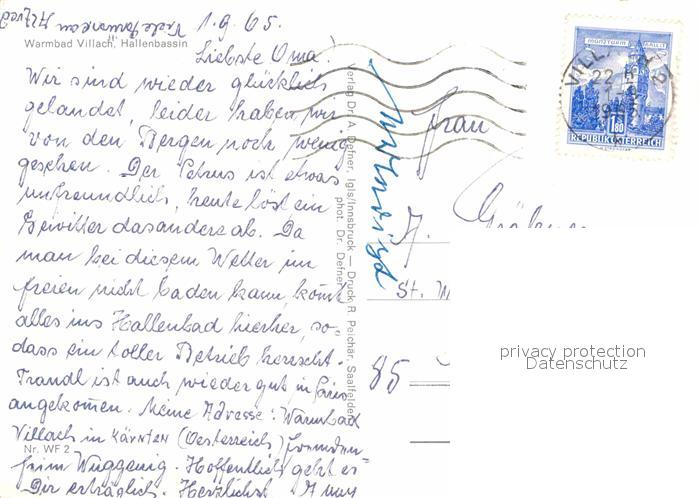 1.9.65.
Warmbad Villach, Hallenbassin
Liebste Oma!
Wir sind wieder glücklich
gelandet, leider haben wir
von den Bergen noch wenig
gesehen. Der Petrus ist etwas
unfreundlich, heute löst ein
Gewitter das andere ab. Da
man bei diesem Wetter im
freien nicht baden kann, kommt
alles ins Hallenbad hierher, so-
dass ein toller Betrieb herrscht.
Traudl ist auch wieder gut in
angekommen. Meine Adresse: Warmbad
Villach in KÄRNTEN (Oesterreich) Fremden-
heim Wuggenig. Hoffentlich geht es
Dir erträglich. Herzlichst
Nr. WF 2
Verlag Dr. A. Defner, Igls/Innsbruck — Druck R. Peichär, Saalfelden
phot. Dr. Defner
Frau
A.
St.
85
MÜNZTURM HALL I.T.
1.80
REPUBLIK ÖSTERREICH
VILLACH 2
22
privacy protection
Datenschutz